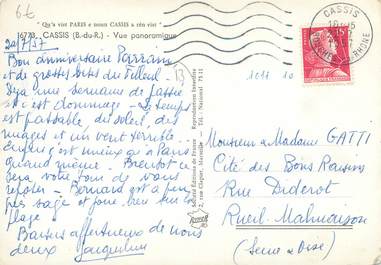 "Qu'a vist PARIS e noun CASSIS a rèn vist"
16773. CASSIS (B.-du-R.) - Vue panoramique
20/7/57
Bon anniversaire Parrain
et de grosses bises du filleul -
Déjà une semaine de passée
et c'est dommage - Le temps
est passable, du soleil, des
nuages et un vent terrible.
Enfin c'est mieux qu'à Paris
quand même. Bientôt ce
sera votre tour de vous
reposer - Bernard est à peu
près sage et joue bien sur la
plage
Baisers affectueux de nous
deux Jacqueline
Société Editions de France
2, rue Clapier, Marseille - Tél. National 75-11
Reproduction Interdite
CASSIS
BOUCHES-DU-RHONE
15F
1011 10
Monsieur et Madame GATTI
Cité des Bons Raisins
Rue Diderot
Rueil-Malmaison
(Seine & Oise)